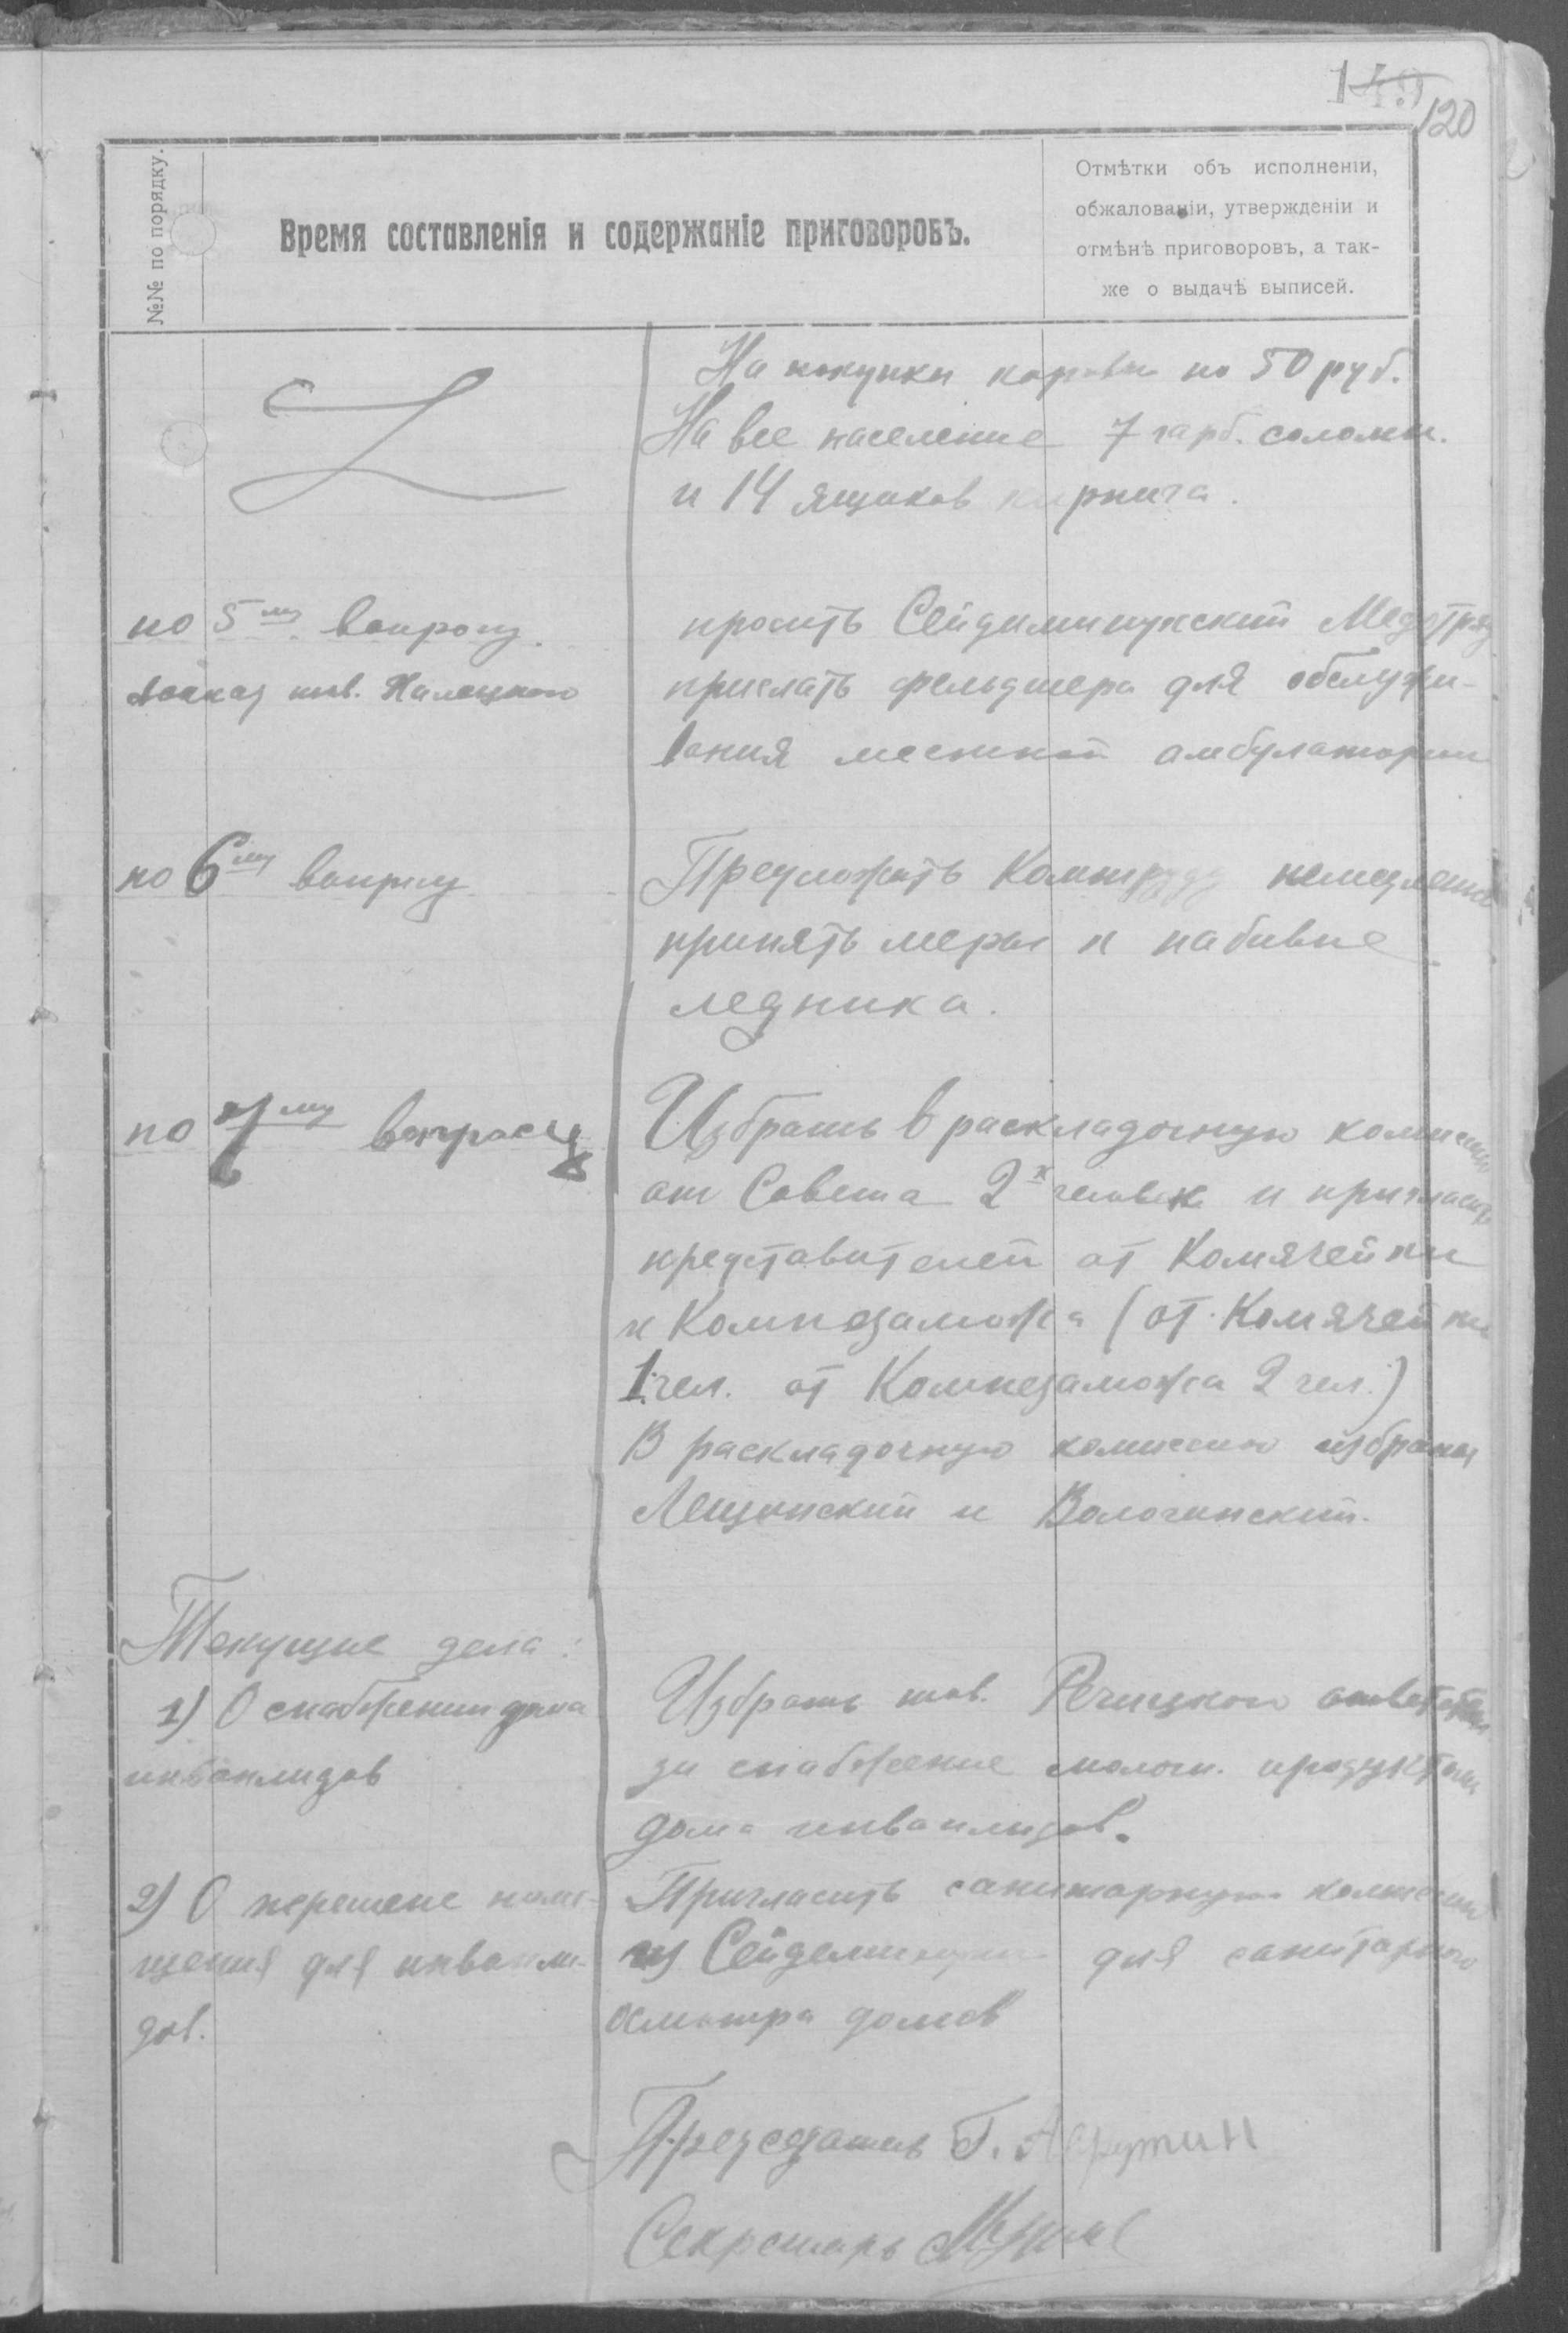 149
120
№№ по порядку.
Время составленія и содержаніе приговоровъ.
Отмѣтки объ исполненіи,
обжалованіи, утвержденіи и
отмѣнѣ приговоровъ, а так-
же о выдачѣ выписей.
На покупки коровы по 50 руб.
На все население 7 гарб. соломы.
и 14 ящиков кирпича.
по 5му вопросу.
доклад тов.
просить Сейдиминухский Медотряд
прислать фельдшера для обслужи-
вания местной амбулатории
по 6му вопросу
Предложить немедленно
принять меры к набивке
ледника.
по 7му вопросу
Избрать в раскладочную комиссию
от Совета 2х человек и пригласить
представителей от Комячейки
и Комнезаможа (от Комячейки
1 чел. от Комнезаможа 2 чел.)
В раскладочную комиссию избраны
Лещинский и Волочинский.
Текущие дела:
1) О снабжении дома
инвалидов
Избрать тов. Речицкого
за снабжение молочн. продуктами
дома инвалидов.
2) О перемене поме-
щения для инвали-
дов.
Пригласить санитарную комиссию
из для санитарного
осмотра домов
Председатель Г.
Секретарь